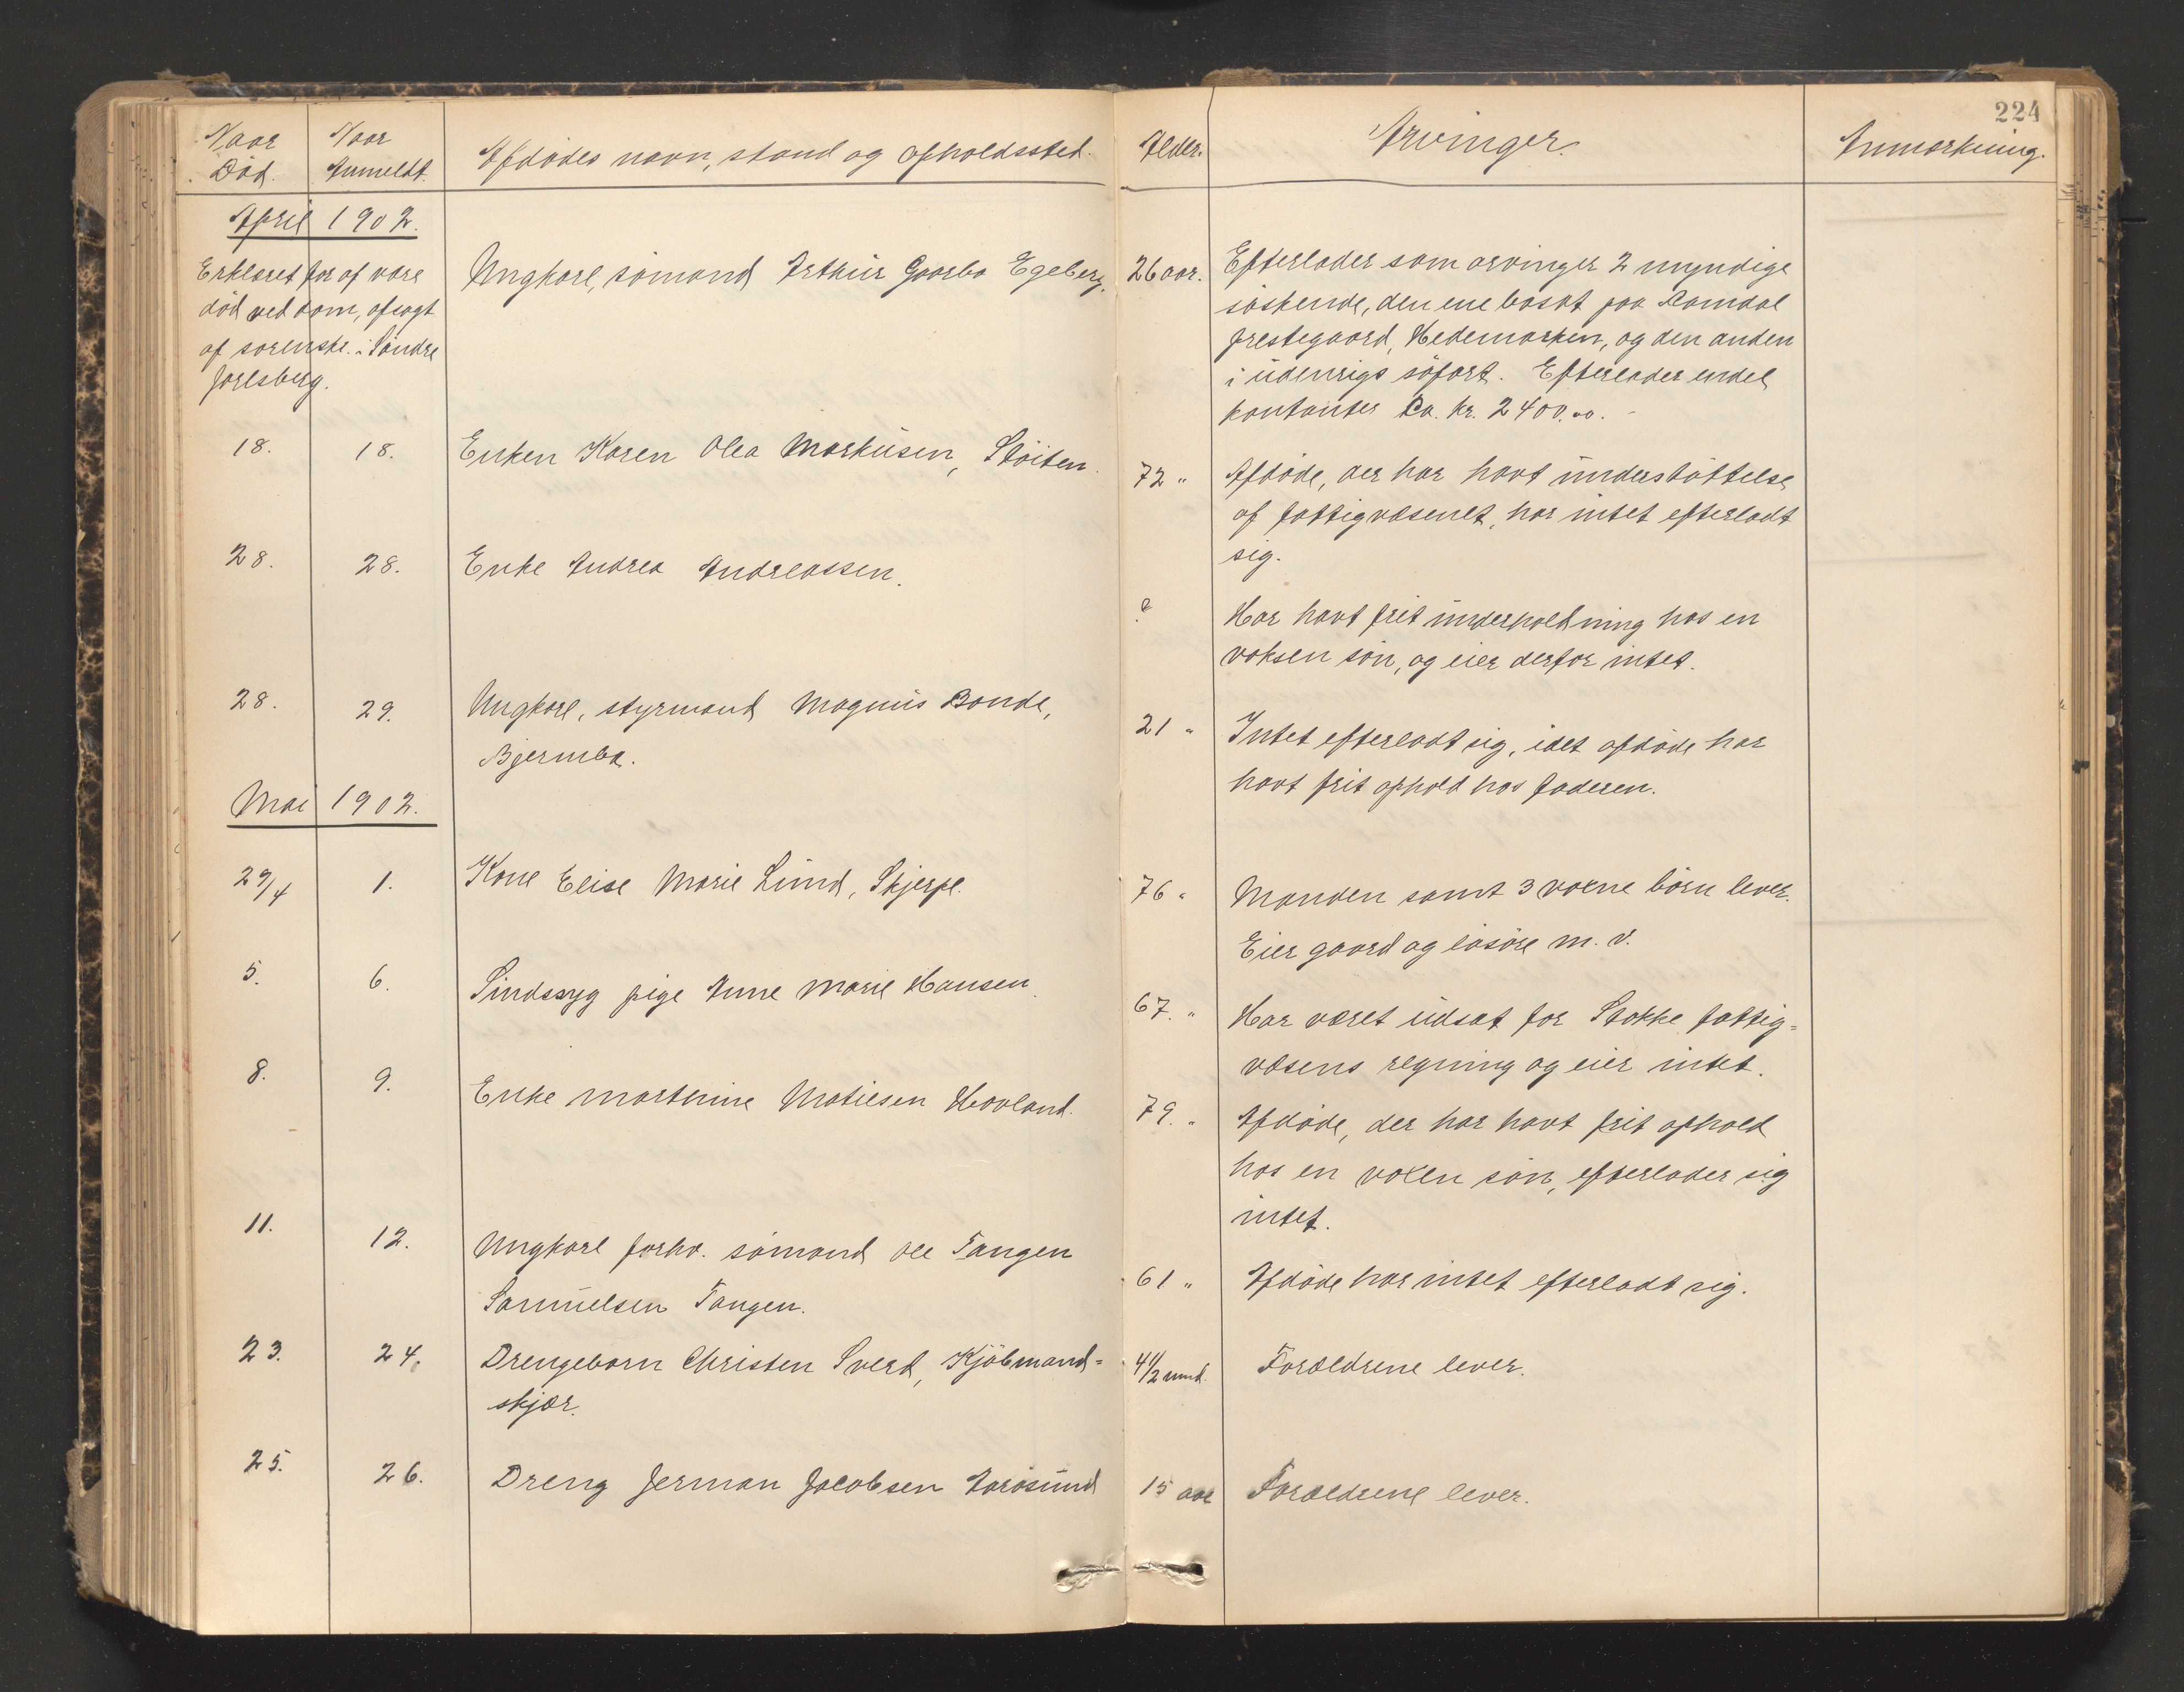 224
Naar Død.
Naar Anmeldt.
Afdødes navn, stand og opholdssted.
Alder.
Arvinger.
Anmærkning.
April 1902.
Erklæret for at være
død ved dom, afsagt
af sorenskr. i Søndre
Jarlsberg.
Ungkarl, sømand Arthur Gaarbo Egeberg.
26 aar.
Efterlader som arvinger 2 myndige
søskende, den ene bosat paa Romdal
prestegaard, Hedemarken, og den anden
i udenrigs søfart. Efterlader endel
kontanter ca. kr. 2400.00.
18.
18.
Enken Karen Olea Markusen, Støiten.
72 "
Afdøde, der har havt understøttelse
af fattigvæsenet, har intet efterladt
sig.
28.
28.
Enke Andrea Andreassen.
?
Har havt frit underholdning hos en
voksen søn, og eier derfor intet.
28.
29.
Ungkarl, styrmand Magnus Bonde,
Bjermba.
21 "
Intet efterladt sig, idet afdøde har
havt frit ophold hos faderen.
Mai 1902.
29/4
1.
Kone Elise Marie Lund, Skjerpe.
76 "
Manden samt 3 voxne børn lever.
Eier gaard og løsøre m. v.
5.
6.
Sindssyg pige Anne Marie Hansen.
67. "
Har været udsat for Stokke fattig=
væsens regning og eier intet.
8.
9.
Enke Martenine Matiesen Hovland.
79. "
Afdøde, der har havt frit ophold
hos en voxen søn, efterlader sig
intet.
11.
12.
Ungkarl forhv. sømand Ole Tangen
Samuelsen Tangen.
61 "
Afdøde har intet efterladt sig.
23.
24.
Drengebarn Christen Sverd, Kjøbmand=
skjær.
4 1/2 mnd.
Forældrene lever.
25.
26.
Dreng Jerman Jacobsen Aarøsund
15 aar
Forældrene lever.